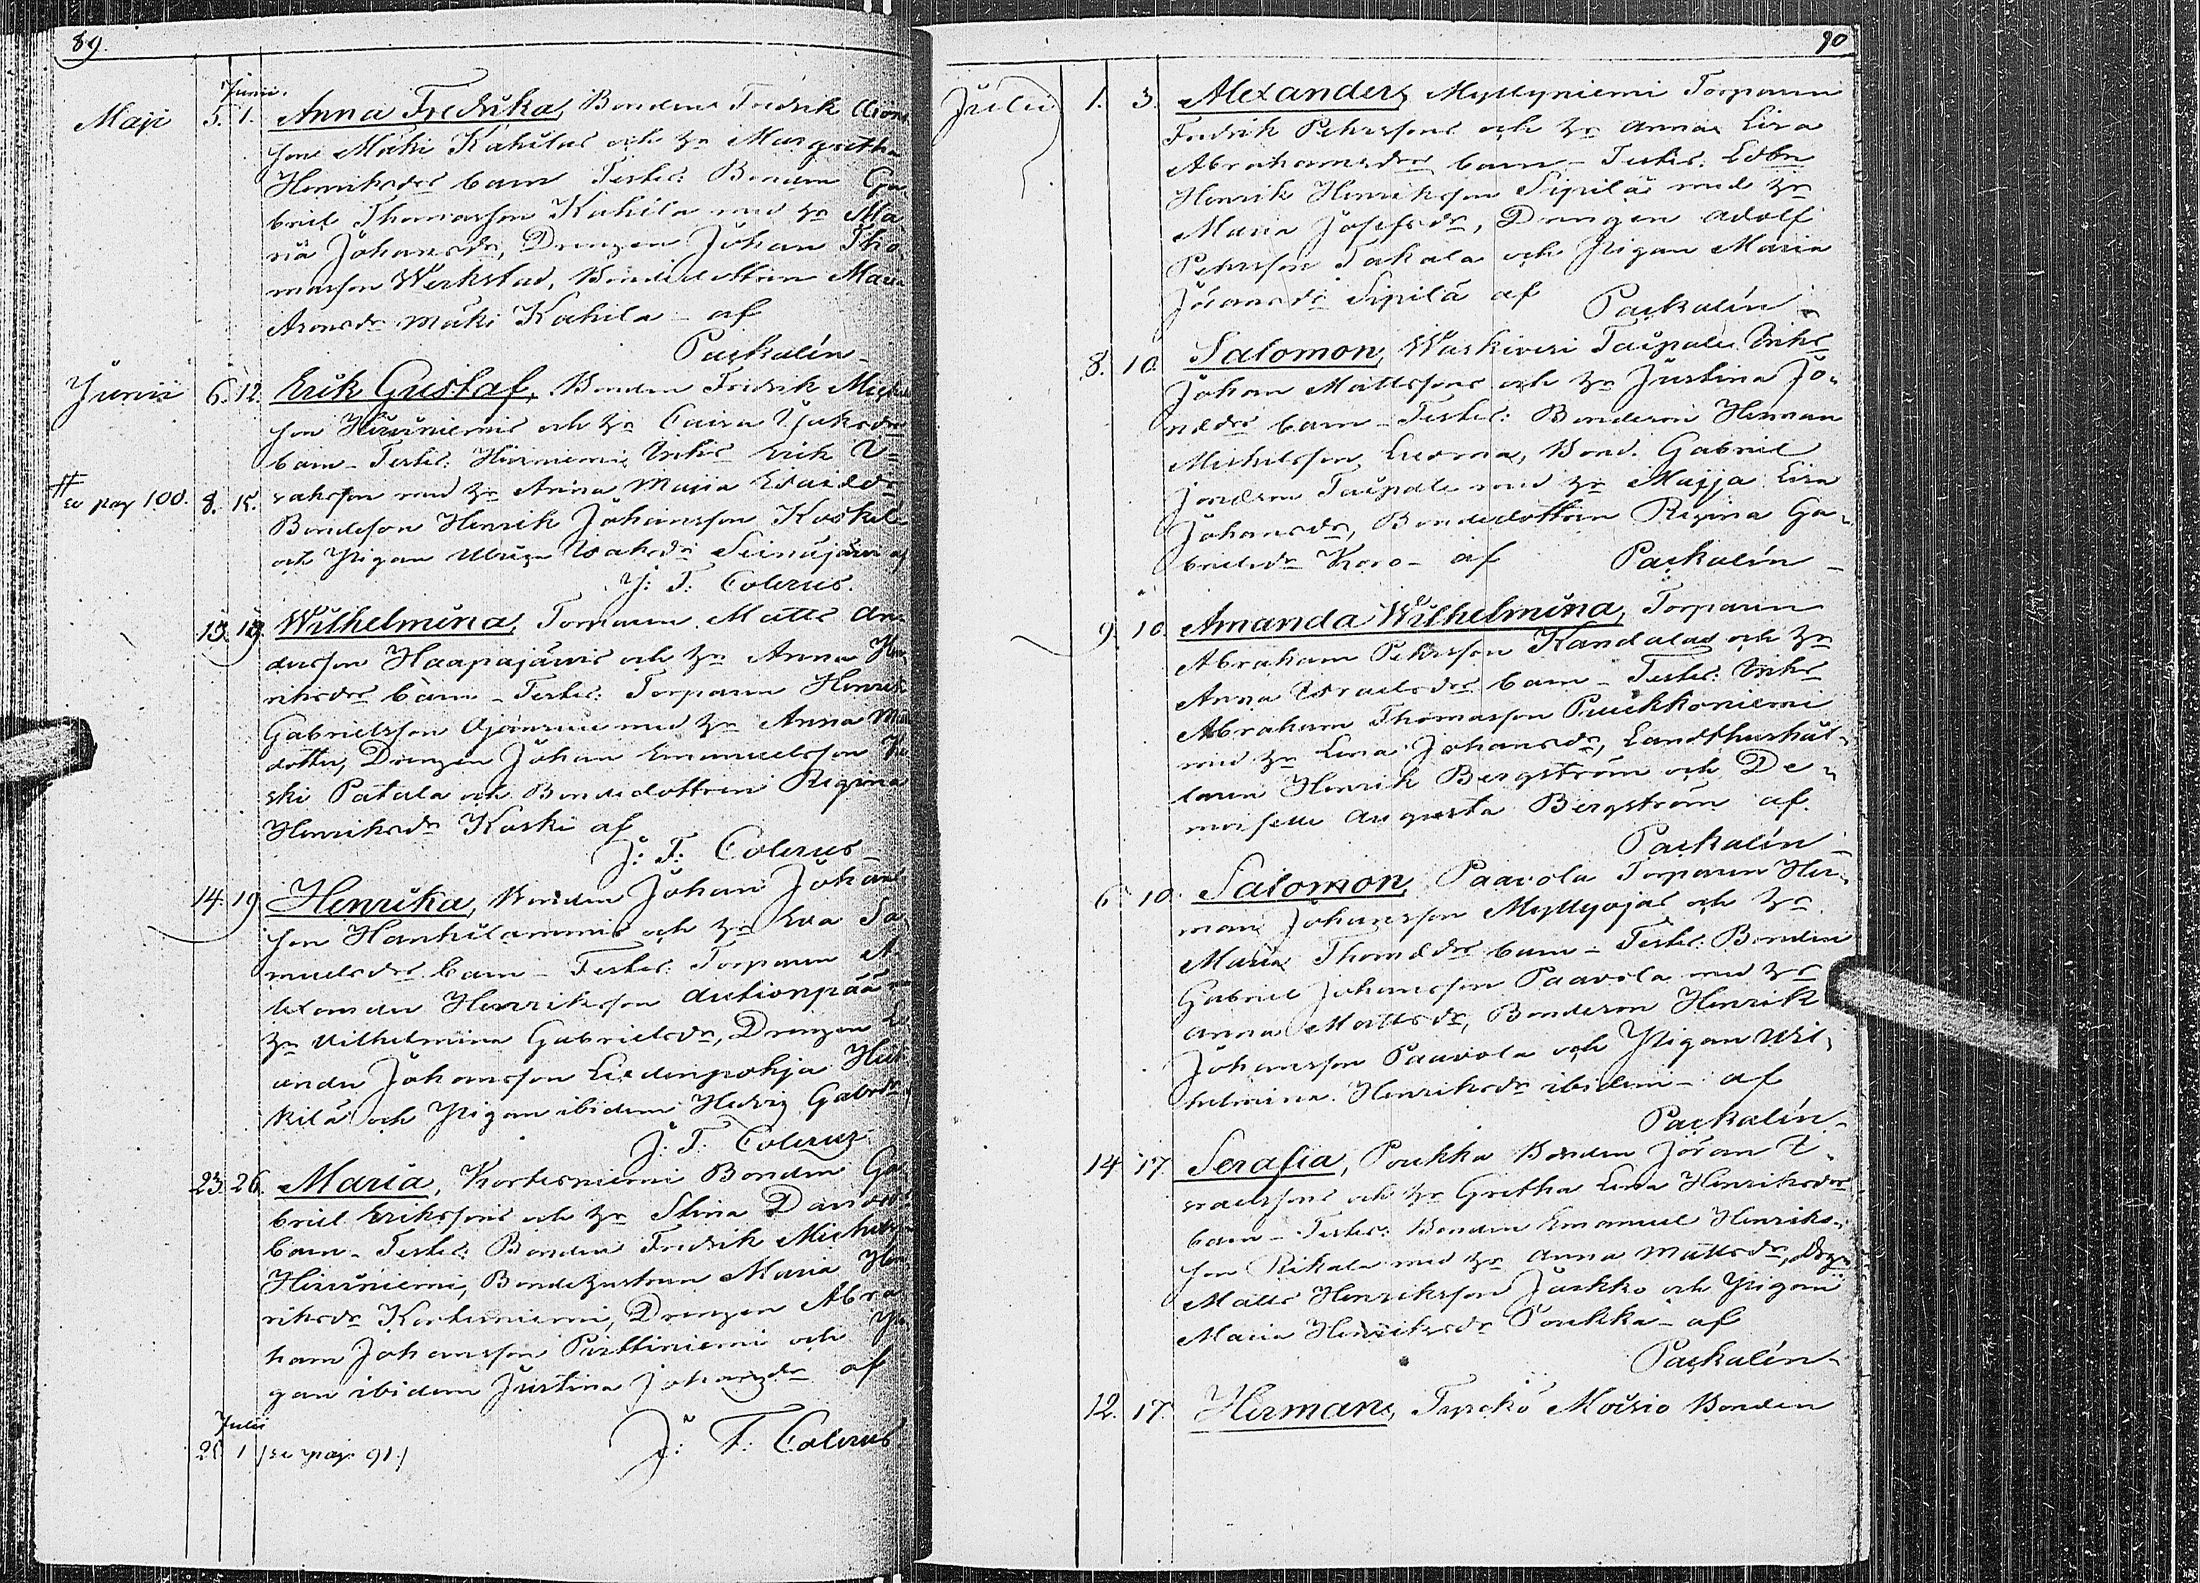 89.
Junii.
Maji 5. 1. Anna Fredrika, Bonden Fredrik Arons
sons Mäki Kahilas och h:u Margretha
Henriksdrs barn Testes: Bonden Ga
briel Thomasson Kahila med h:u Ma
ria Johansdr, Drengen Johan Tho
masson Werkstad, Bondedottren Maria
Aronsdr Mäki Kahila - af
Paskalín -
Junii 6. 12. Erik Gustaf, Bonden Fredrik Michel
son Hirviniemis och h:u Caisa
barn - Testes: Hirviniemi Inhs Erik I=
# se pag 100. 8. 15. sakson med h:u Anna Maria Esaiædr
Bondeson Henrik Johansson Koskel
och Pigan Isaksdr Seinäjärvi af
J: T: Colerus.
15. 19. Wilhelmina, Torparen Matts An
dersson Haapajärvis och h:u Anna Hen
riksdrs barn - Testes: Torparen Henrik
Gabrielsson med h:u Anna Mats
dotter, Drengen Johan Emanuelsson
ski Patala och Bondedottren Regina
Henriksdr Koski af
J: T: Colerus -
14. 19. Henrika, Bonden Johan Johans
son Hankilammis och h:u Eva Sa
muelsdrs barn - Testes: Torparen A
lexander Henriksson
h:u Vilhelmina Gabrielsdr, Drengen
ander Johansson Liedenpohja Heik
kilä och Pigan ibidem Hedvig Gabrdr
J. T. Colerus
23. 26. Maria, Kortesniemi Bonden Ga
briel Erikssons och h:u Stina Davidsdrs
barn - Testes: Bonden Fredrik Michelsson
Hirviniemi, Bondehustrun Maria Hen
riksdr Kortesniemi, Drengen Abra
ham Johansson Parttiniemi och Pi
gan ibidem Justina Johansdr af
J: T: Colerus
Julii
25 1 /se pag. 91./
90
Julii 1. 3. Alexander, Myllyniemi Torparen
Fredrik Pehrssons och h:u Anna Lisa
Abrahamsdrs barn - Testes:
Henrik Henriksson Sipilä med h:u
Maria Josefsdr, Drengen Adolf
Pehrsson Takala och Pigan Maria
Jöransdr Sipilä af Paskalín -
8. 10. Salomon, Waskivesi Taipale Inhs
Johan Mattssons och h:u Justina Jo=
nædrs barn - Testes: Bondeson Herman
Michelsson Luoma, Bond. Gabriel
Jonæson Taipale med h:u Majja Lisa
Johansdr, Bondedottren Regina Ga=
brielsdr Koro - af Paskalín -
9. 10. Amanda Wilhelmina, Torparen
Abraham Pehrsson Kandalas och h:u
Anna Israelsdrs barn - Testes: Inhs
Abraham Thomasson Puukkoniemi
med h:u Lena Johansdr, Landthushål=
laren Henrik Bergström och De=
moiselle Augusta Bergström af
Paskalín -
6 10. Salomon, Paavola Torparen Her=
man Johansson Myllyojas och h:u
Maria Thomædrs barn - Testes: Bonden
Gabriel Johansson Paavola med h:u
Anna Mattsdr, Bondeson Henrik
Johansson Paavola och Pigan Wil=
helmina Henriksdr ibidem - af
Paskalín -
14 17. Serafia, Poukka Bonden Jöran I=
sraelssons och h:u Gretha Lena Henriksdrs
barn - Testes: Bonden Emanuel Henriks=
son Rikala med h:u Anna Mattsdr, Drgn
Matts Henriksson Juskko och Pigan
Maria Henriksdr Poukka - af
Paskalín -
12. 17. Herman, Tyrskö Moisio Bonden